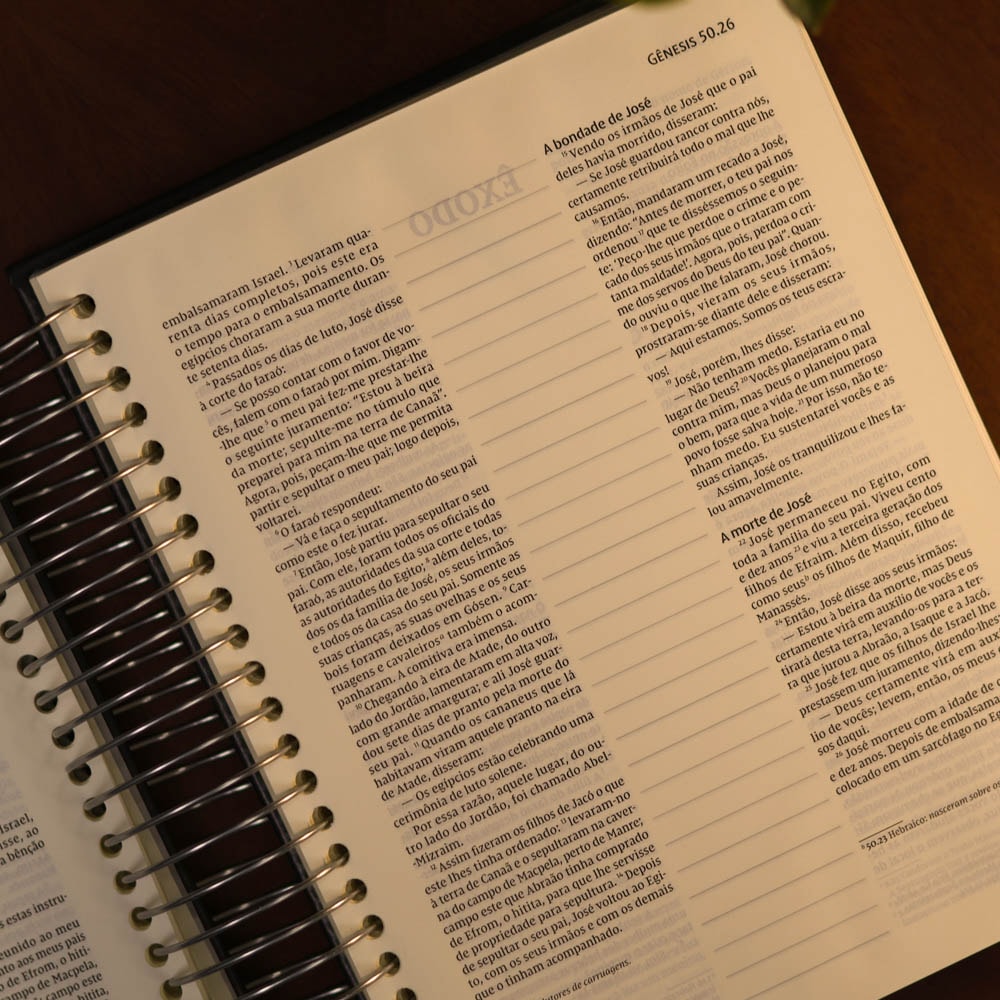 GÊNESIS 50.26
embalsamaram Israel. ³Levaram qua-
renta dias completos, pois este era
o tempo para o embalsamamento. Os
egípcios choraram a sua morte duran-
te setenta dias.
⁴Passados os dias de luto, José disse
à corte do faraó:
— Se posso contar com o favor de vo-
cês, falem com o faraó por mim. Digam-
-lhe que ⁵o meu pai fez-me prestar-lhe
o seguinte juramento: “Estou à beira
da morte; sepulte-me no túmulo que
preparei para mim na terra de Canaã”.
Agora, pois, peçam-lhe que me permita
partir e sepultar o meu pai; logo depois,
voltarei.
⁶O faraó respondeu:
— Vá e faça o sepultamento do seu pai
como este o fez jurar.
⁷Então, José partiu para sepultar o seu
pai. Com ele, foram todos os oficiais do
faraó, as autoridades da sua corte e todas
as autoridades do Egito; ⁸além deles, to-
dos os da família de José, os seus irmãos
e todos os da casa do seu pai. Somente as
suas crianças, as suas ovelhas e os seus
bois foram deixados em Gósen. ⁹Car-
ruagens e cavaleirosᵃ também o acom-
panharam. A comitiva era imensa.
¹⁰Chegando à eira de Atade, do outro
lado do Jordão, lamentaram em alta voz,
com grande amargura; e ali José guar-
dou sete dias de pranto pela morte do
seu pai. ¹¹Quando os cananeus que lá
habitavam viram aquele pranto na eira
de Atade, disseram:
— Os egípcios estão celebrando uma
cerimônia de luto solene.
Por essa razão, aquele lugar, do ou-
tro lado do Jordão, foi chamado Abel-
-Mizraim.
¹²Assim fizeram os filhos de Jacó o que
este lhes tinha ordenado: ¹³levaram-no
à terra de Canaã e o sepultaram na caver-
na do campo de Macpela, perto de Manre,
campo este que Abraão tinha comprado
de Efrom, o hitita, para que lhe servisse
de propriedade para sepultura. ¹⁴Depois
de sepultar o seu pai, José voltou ao Egi-
to, com os seus irmãos e com os demais
que o tinham acompanhado.
utores de carruagens.
ÊXODO
A bondade de José
¹⁵Vendo os irmãos de José que o pai
deles havia morrido, disseram:
— Se José guardou rancor contra nós,
certamente retribuirá todo o mal que lhe
causamos.
¹⁶Então, mandaram um recado a José,
dizendo: “Antes de morrer, o teu pai nos
ordenou ¹⁷que te disséssemos o seguin-
te: ‘Peço-lhe que perdoe o crime e o pe-
cado dos seus irmãos que o trataram com
tanta maldade!’. Agora, pois, perdoa o cri-
me dos servos do Deus do teu pai”. Quan-
do ouviu o que lhe falaram, José chorou.
¹⁸Depois, vieram os seus irmãos,
prostraram-se diante dele e disseram:
— Aqui estamos. Somos os teus escra-
vos!
¹⁹José, porém, lhes disse:
— Não tenham medo. Estaria eu no
lugar de Deus? ²⁰Vocês planejaram o mal
contra mim, mas Deus o planejou para
o bem, para que a vida de um numeroso
povo fosse salva hoje. ²¹Por isso, não te-
nham medo. Eu sustentarei vocês e as
suas crianças.
Assim, José os tranquilizou e lhes fa-
lou amavelmente.
A morte de José
²²José permaneceu no Egito, com
toda a família do seu pai. Viveu cento
e dez anos ²³e viu a terceira geração dos
filhos de Efraim. Além disso, recebeu
como seusᵇ os filhos de Maquir, filho de
Manassés.
²⁴Então, José disse aos seus irmãos:
— Estou à beira da morte, mas Deus
certamente virá em auxílio de vocês e os
tirará desta terra, levando-os para a ter-
ra que jurou a Abraão, a Isaque e a Jacó.
²⁵José fez que os filhos de Israel lhe
prestassem um juramento, dizendo-lhes:
— Deus certamente virá em auxí-
lio de vocês; levem, então, os meus
sos daqui.
²⁶José morreu com a idade de
e dez anos. Depois de embalsama
colocado em um sarcófago no
ᵇ 50.23 Hebraico: nasceram sobre os
Israel,
isse, ao
a bênção
s estas instru-
eunido ao meu
nto aos meus pais
o de Efrom, o hiti-
campo de Macpela,
campo este
hitita,